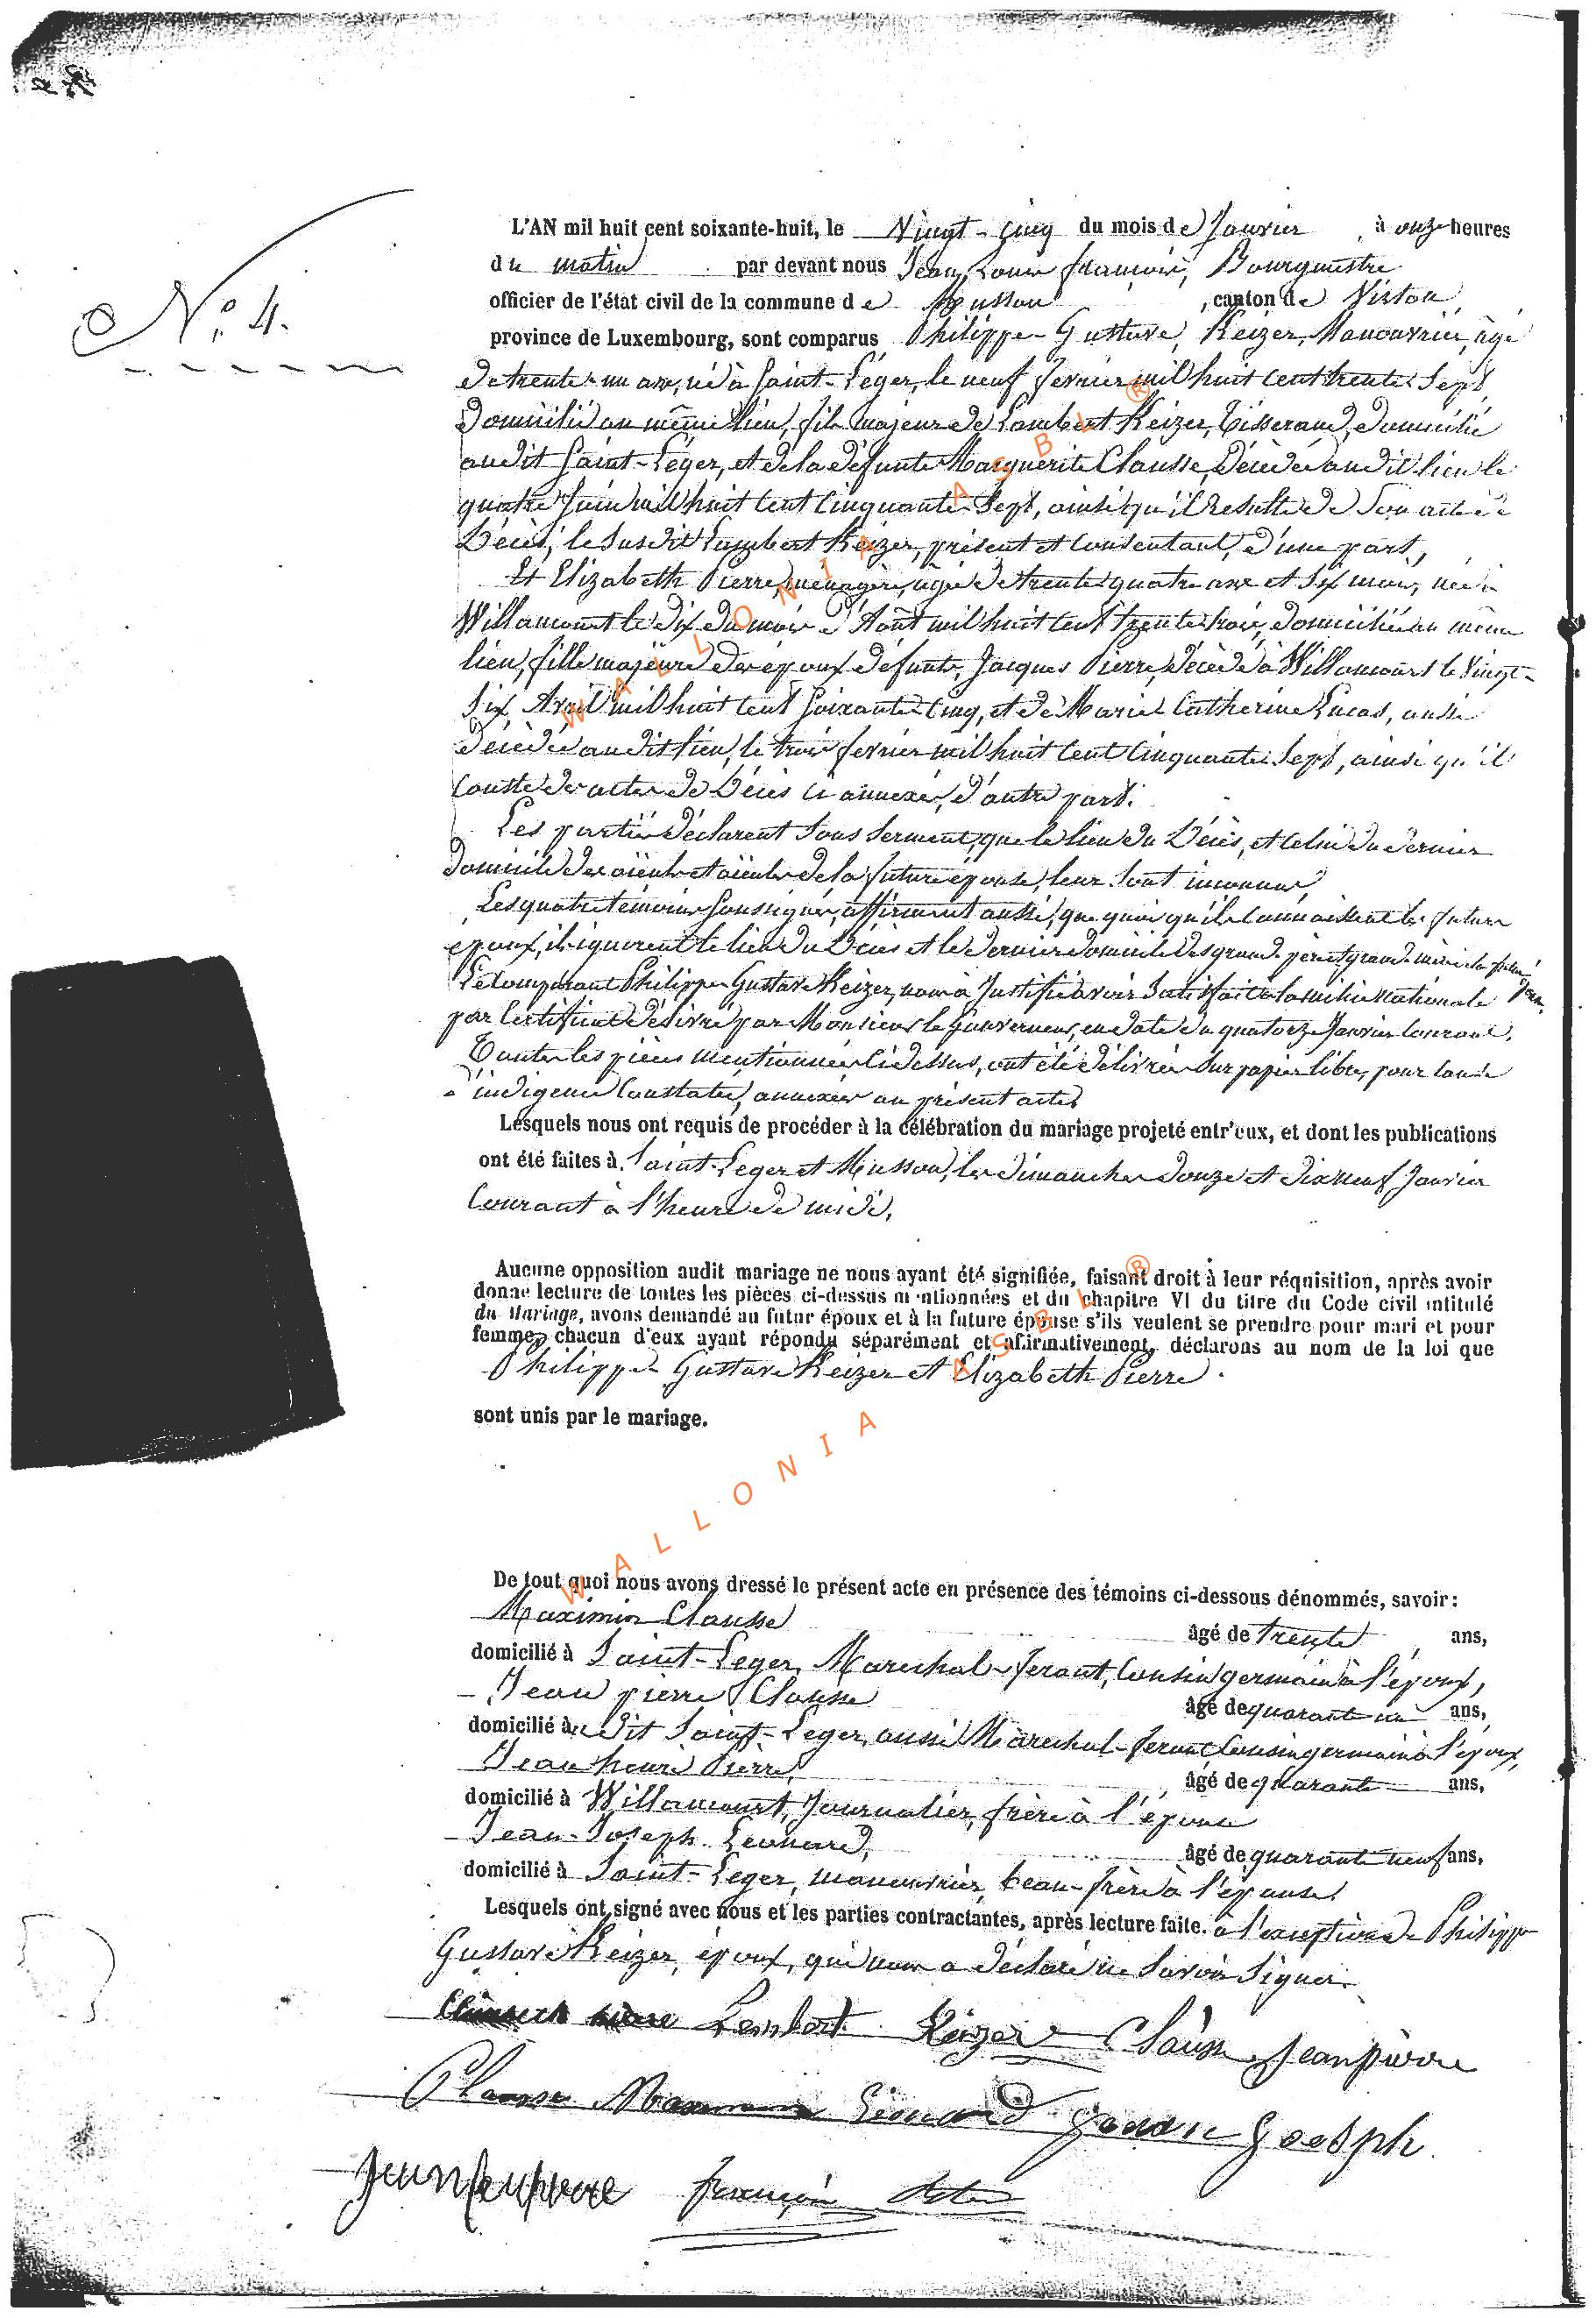 N.° 4.
L'AN mil huit cent soixante-huit, le Vingt-cinq du mois de Janvier, à onze heures
du matin par devant nous Jean Louis françois, Bourgmestre
officier de l'état civil de la commune de Musson, canton de Virton
province de Luxembourg, sont comparus Philippe-Gustave Keizer, Manouvrier, âgé
de trente-un ans, né à Saint-Léger, le neuf fevrier mil huit cent trente-sept,
domicilié au même lieu, fils majeur de Lambert Keizer, Tisserand, domicilié
audit Saint-Léger, et de la défunte Marguerite Clausse, décédée audit lieu le
quatre Juin mil huit cent cinquante-sept, ainsi qu'il resulte de son acte de
Décès, le susdit Lambert Keizer, présent et consentant, d'une part,
Et Elizabeth Pierre, ménagère, âgée de trente-quatre ans et six mois, née à
Willancourt le dix du mois d'Août mil huit cent trente-trois, domiciliée au même
lieu, fille majeure des époux défunts, Jacques Pierre, décédé à Willancourt le Vingt-
six Avril mil huit cent soixante-cinq, et de Marie Catherine Lucas, aussi
décédée audit lieu, le trois fevrier mil huit cent cinquante-sept, ainsi qu'il
conste des actes de Décès ci annexés, d'autre part.
Les parties déclarent sous serment, que le lieu du Décès, et celui du dernier
domicile des aïeuls et aïeules de la future épouse, leur sont inconnus,
Les quatre témoins soussignés, affirment aussi, que quoi qu'ils connaissent les futurs
époux, ils ignorent le lieu du Décès et le dernier domicile des grands pères et grands mères de la future épouse.
Le comparant Philippe Gustave Keizer, nous a justifié avoir satisfait à la milice Nationale
par Certificat délivré par Monsieur le Gouverneur, en date du quatorze Janvier courant.
Toutes les pièces mentionnées ci dessus, ont été délivrées sur papier libre, pour cause
d'indigence constatée, annexées au présent acte.
Lesquels nous ont requis de procéder à la célébration du mariage projeté entr'eux, et dont les publications
ont été faites à Saint-Leger et Musson, les dimanches douze et dix neuf Janvier
courant à l'heure de midi.
Aucune opposition audit mariage ne nous ayant été signifiée, faisant droit à leur réquisition, après avoir
donné lecture de toutes les pièces ci-dessus mentionnées et du chapitre VI du titre du Code civil intitulé
du Mariage, avons demandé au futur époux et à la future épouse s'ils veulent se prendre pour mari et pour
femme, chacun d'eux ayant répondu séparément et affirmativement, déclarons au nom de la loi que
Philippe Gustave Keizer et Elizabeth Pierre.
sont unis par le mariage.
De tout quoi nous avons dressé le présent acte en présence des témoins ci-dessous dénommés, savoir:
Maximin Clausse âgé de trente ans,
domicilié à Saint-Leger, Marechal-ferant, cousin germain à l'époux,
Jean pierre Clausse âgé de quarante un ans,
domicilié au dit Saint-Leger, aussi Marechal-ferant cousin germain à l'époux,
Jean henri Pierre, âgé de quarante ans,
domicilié à Willancourt, Journalier, frère à l'épouse
Jean-Joseph Léonard, âgé de quarante neuf ans,
domicilié à Saint-Leger, manouvrier, beau-frère à l'épouse.
Lesquels ont signé avec nous et les parties contractantes, après lecture faite. à l'exception de Philippe
Gustave Keizer, époux, qui nous a déclaré ne savoir signer.
Lembert Keizer Clauss Jeanpierre
Clausse Maximin Léonard Jean Joesph
françois
WALLONIA ASBL ®
WALLONIA ASBL ®